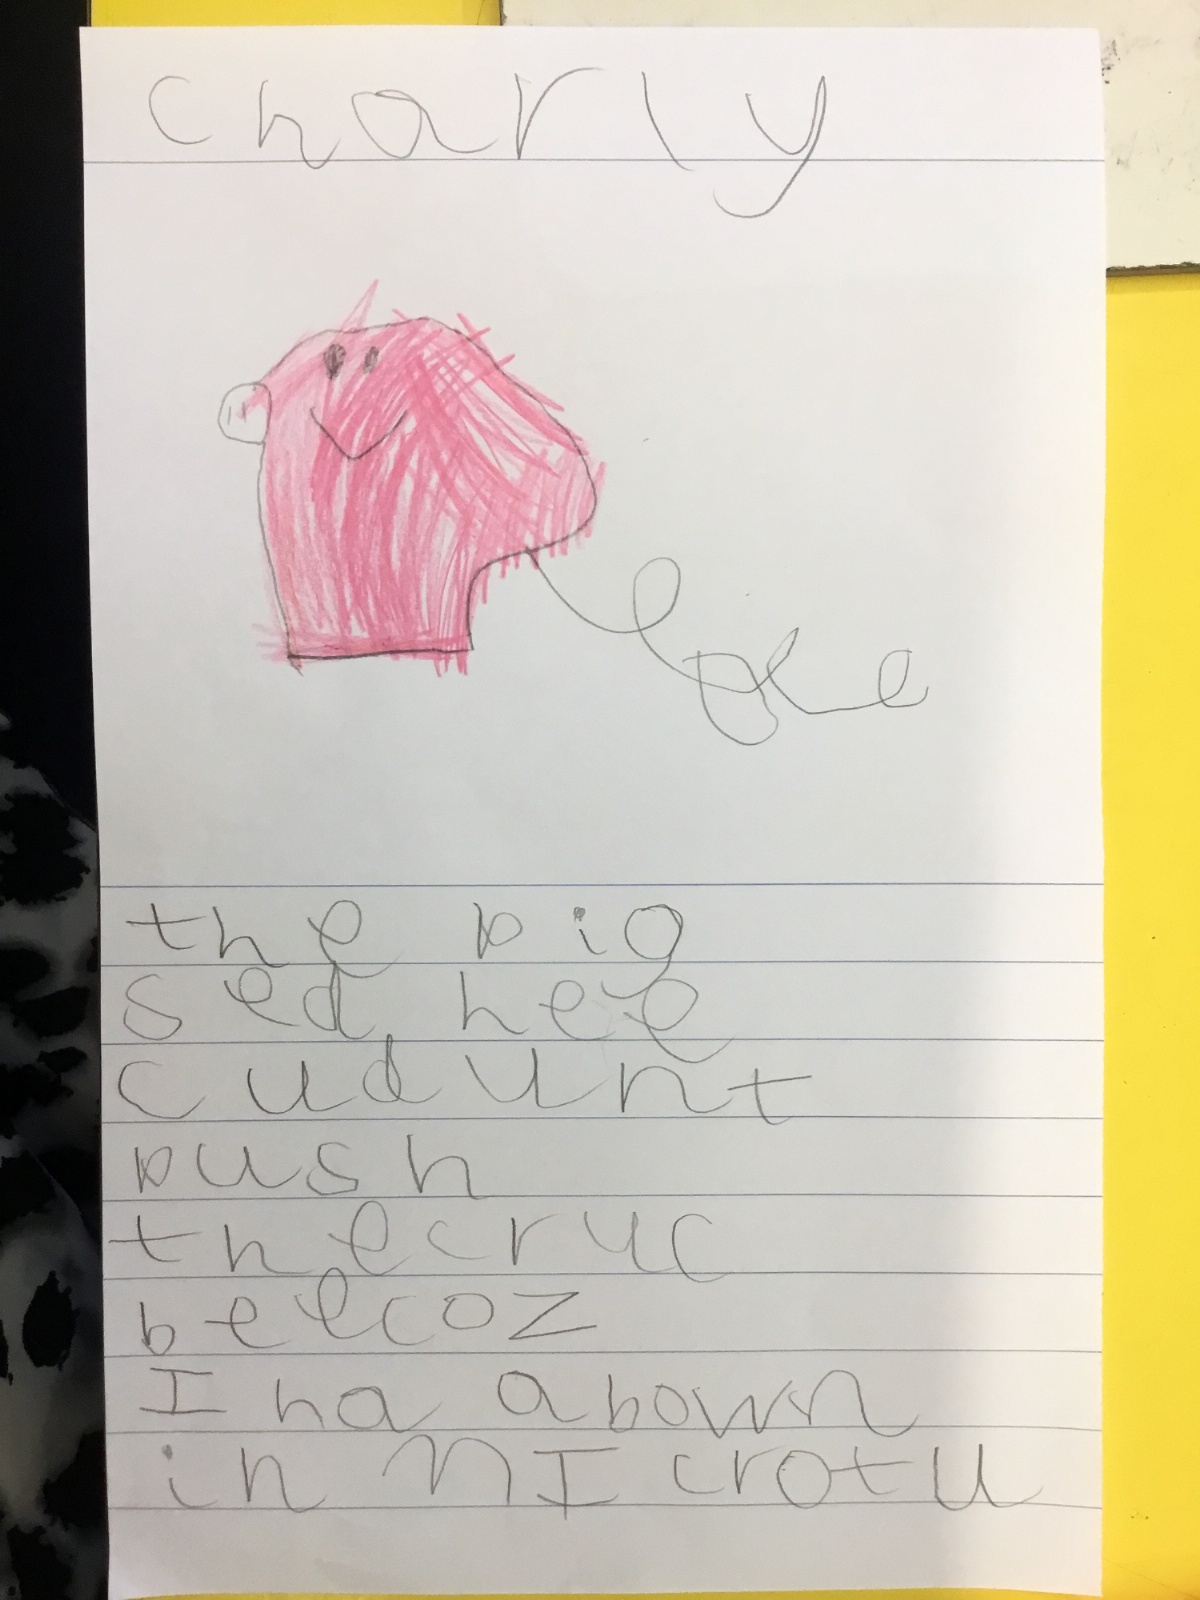 charly
the pig
sed hee
cudunt
push
thecruc
beecoz
I ha abown
in mI crotu